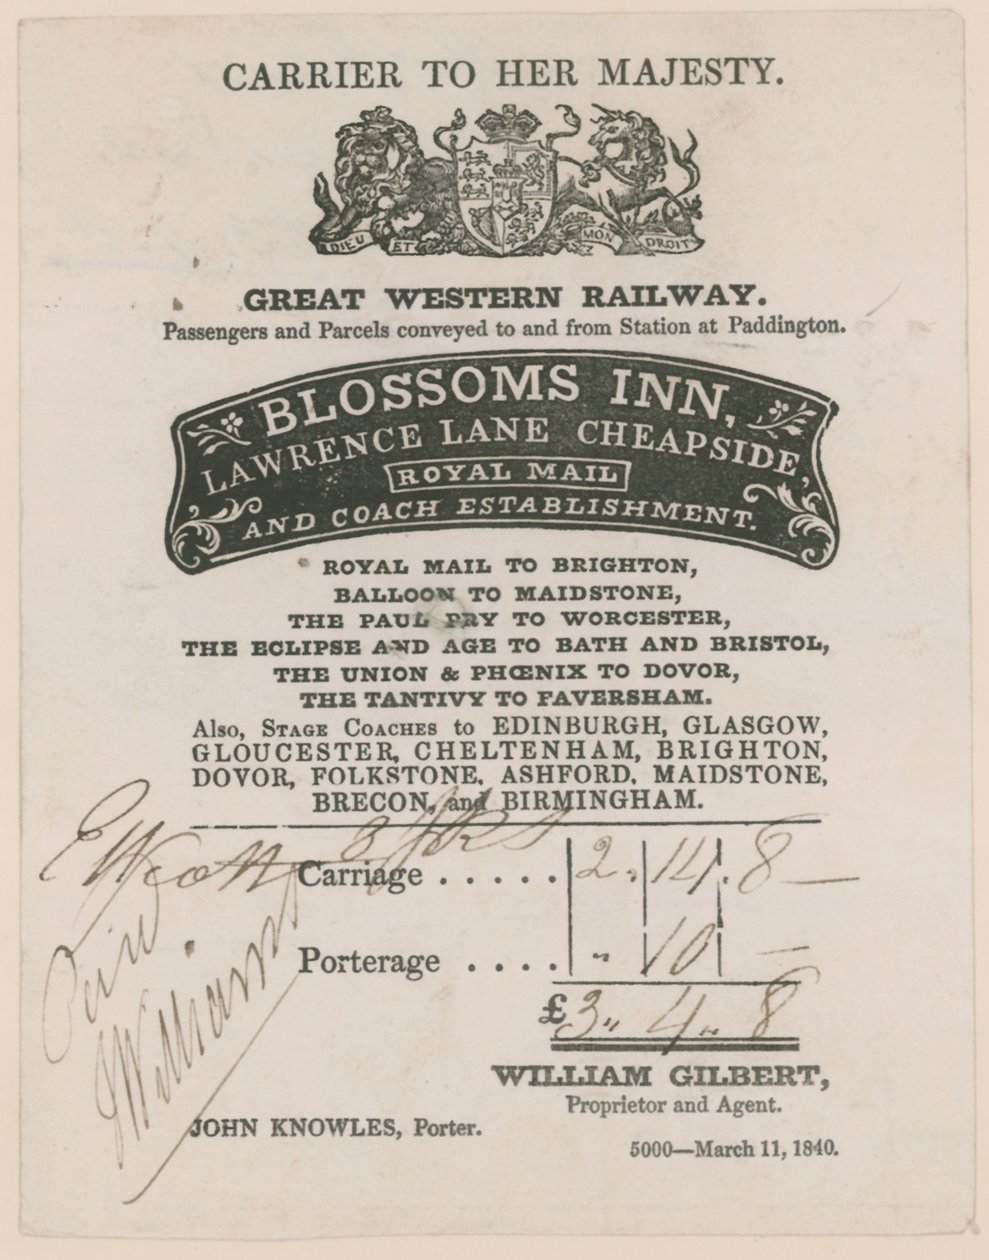 CARRIER TO HER MAJESTY.
DIEU ET MON DROIT
GREAT WESTERN RAILWAY.
Passengers and Parcels conveyed to and from Station at Paddington.
BLOSSOMS INN,
LAWRENCE LANE CHEAPSIDE,
ROYAL MAIL
AND COACH ESTABLISHMENT.
ROYAL MAIL TO BRIGHTON,
BALLOON TO MAIDSTONE,
THE PAUL PRY TO WORCESTER,
THE ECLIPSE AND AGE TO BATH AND BRISTOL,
THE UNION & PHŒNIX TO DOVOR,
THE TANTIVY TO FAVERSHAM.
Also, STAGE COACHES to EDINBURGH, GLASGOW,
GLOUCESTER, CHELTENHAM, BRIGHTON,
DOVOR, FOLKSTONE, ASHFORD, MAIDSTONE,
BRECON, and BIRMINGHAM.
Carriage . . . . . 2. 14. 8
Porterage . . . . " 10 —
£ 3 " 4 " 8
Williams
WILLIAM GILBERT,
Proprietor and Agent.
JOHN KNOWLES, Porter.
5000—March 11, 1840.